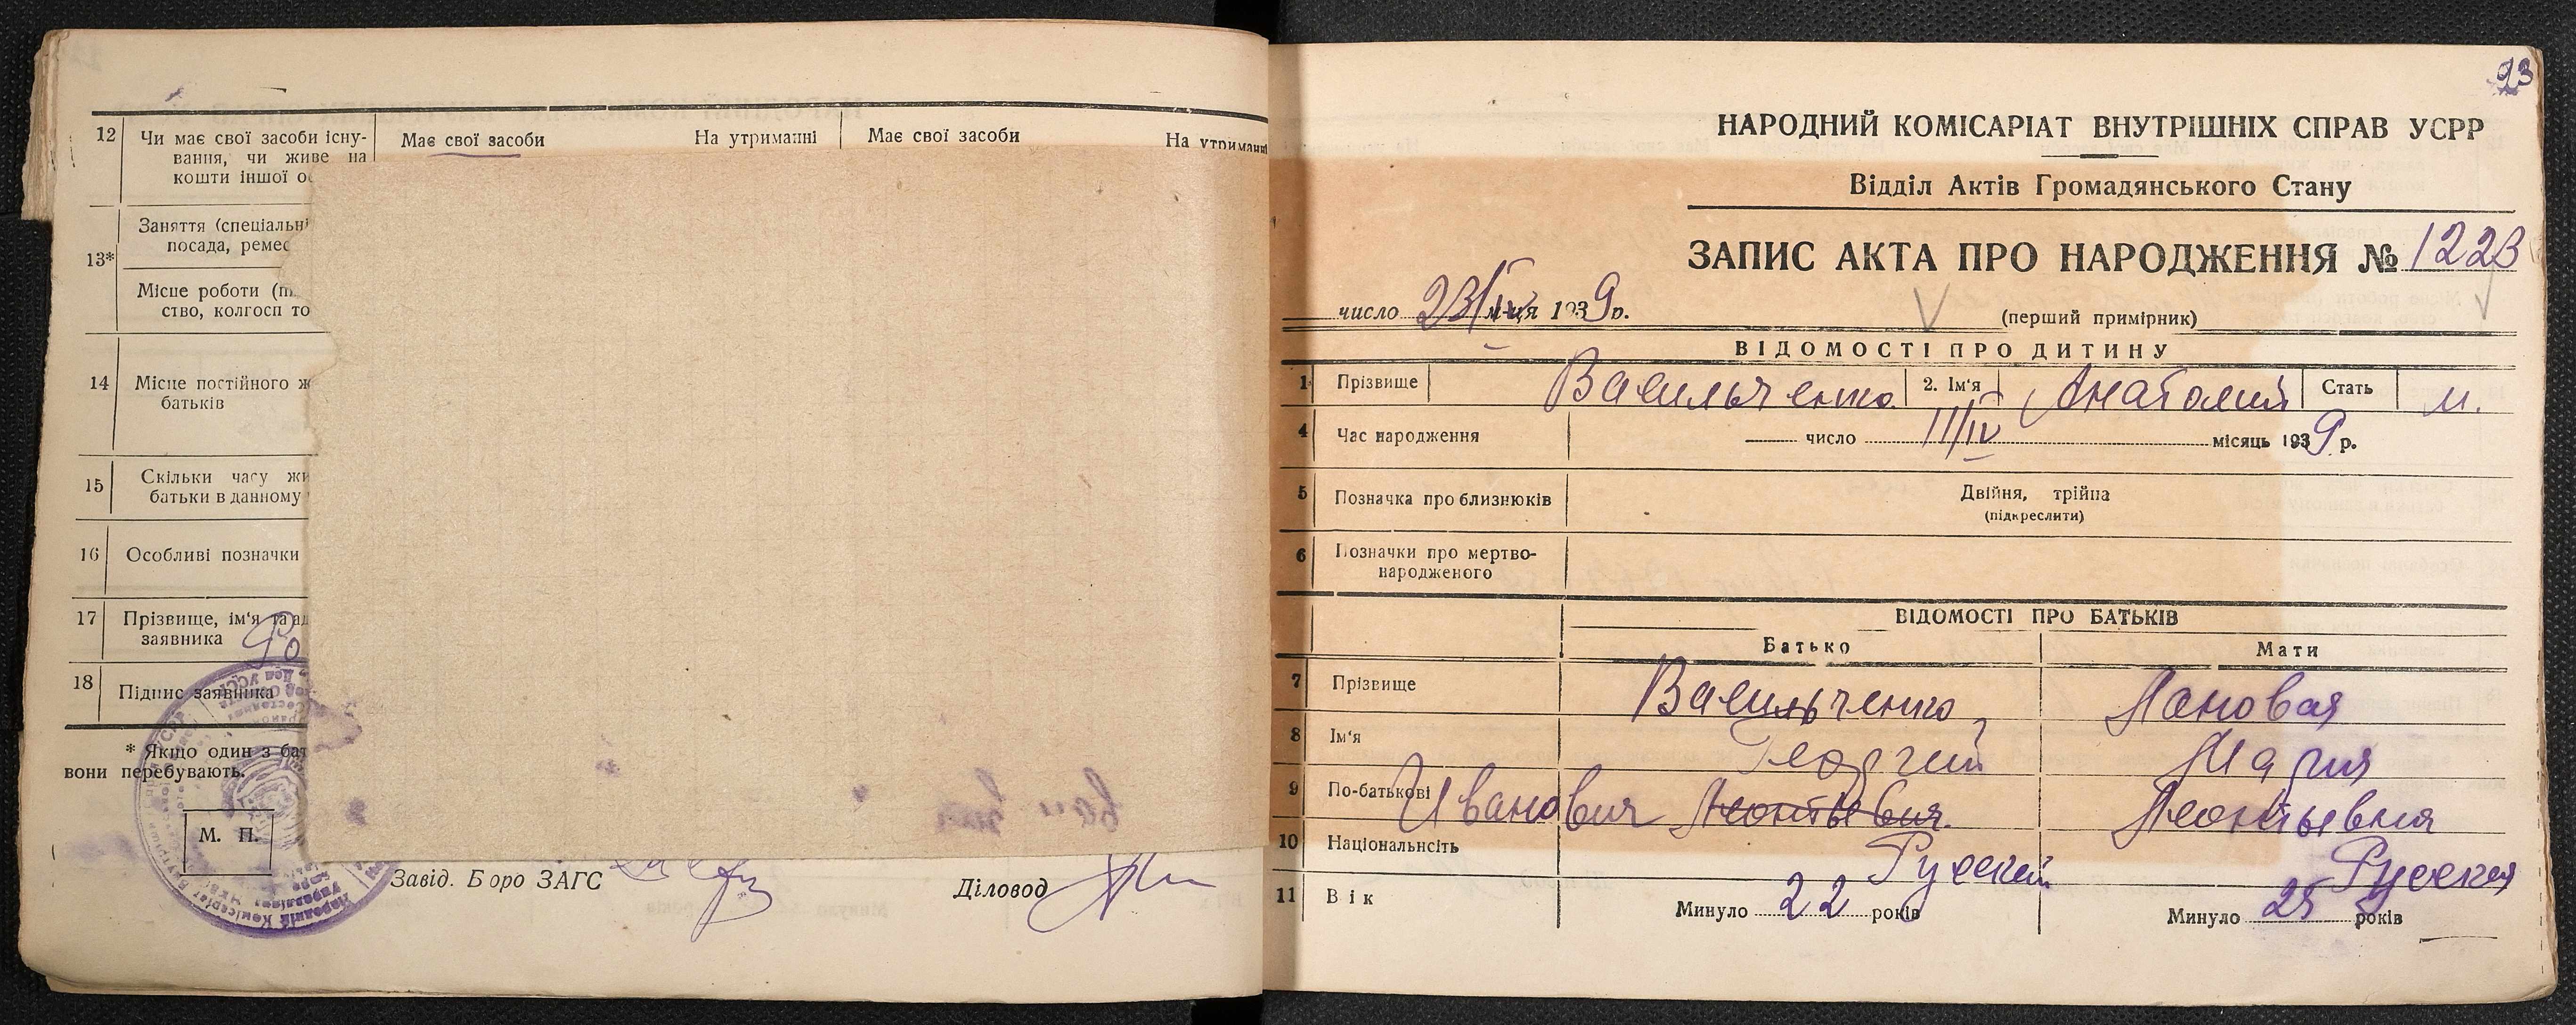 12 Чи має свої засоби існу-
вання, чи живе на
кошти іншої
Має свої засоби На утриманні Має свої засоби На утриманні
13* Заняття (спеціальні
посада, ремес
Місце роботи
ство, колгосп то
14 Місце постійного
батьків
15 Скільки часу
батьки в данному
16 Особливі позначки
17 Прізвище, ім'я та ад
заявника
18 Підпис заявника
* Якщо один з бат
вони перебувають.
М. П.
Завід. Бюро ЗАГС Діловод
НАРОДНИЙ КОМІСАРІАТ ВНУТРІШНІХ СПРАВ УСРР
Відділ Актів Громадянського Стану
ЗАПИС АКТА ПРО НАРОДЖЕННЯ № 1223
число 23/IV м-ця 1939 р.
(перший примірник)
ВІДОМОСТІ ПРО ДИТИНУ
1 Прізвище Васильченко 2. Ім'я Анатолий Стать м.
4 Час народження число 11/IV місяць 1939 р.
5 Позначка про близнюків Двійня, трійна
(підкреслити)
6 Позначки про мертво-
народженого
ВІДОМОСТІ ПРО БАТЬКІВ
Батько Мати
7 Прізвище Васильченко Лановая
8 Ім'я Георгий Мария
9 По-батькові Иванович Леонтьевич. Леонтьевна
10 Національнсіть Русский Русская
11 Вік Минуло 22 років Минуло 25 років